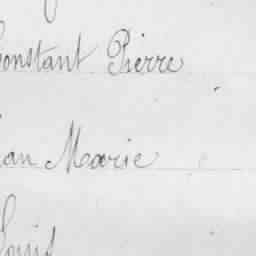 Constant Pierre
Jean Marie
Louis